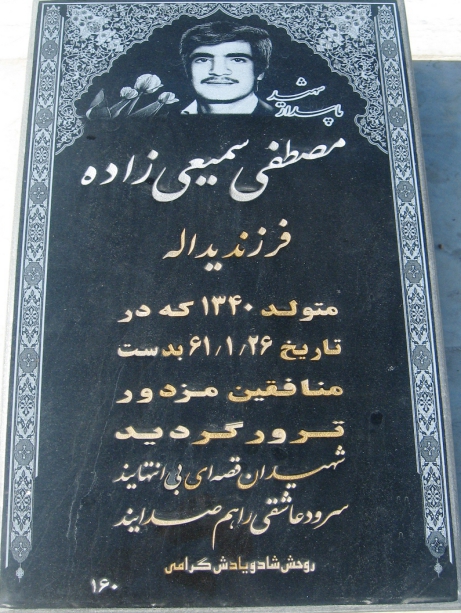 شهید
پاسدار
مصطفی سمیعی زاده
فرزند یداله
متولد ۱۳۴۰ که در
تاریخ ۶۱/۱/۲۶ بدست
منافقین مزدور
ترور گردید
شهیدان قصه ای بی انتهایند
سرود عاشقی را هم صدایند
روحش شاد و یادش گرامی
۱۶۰